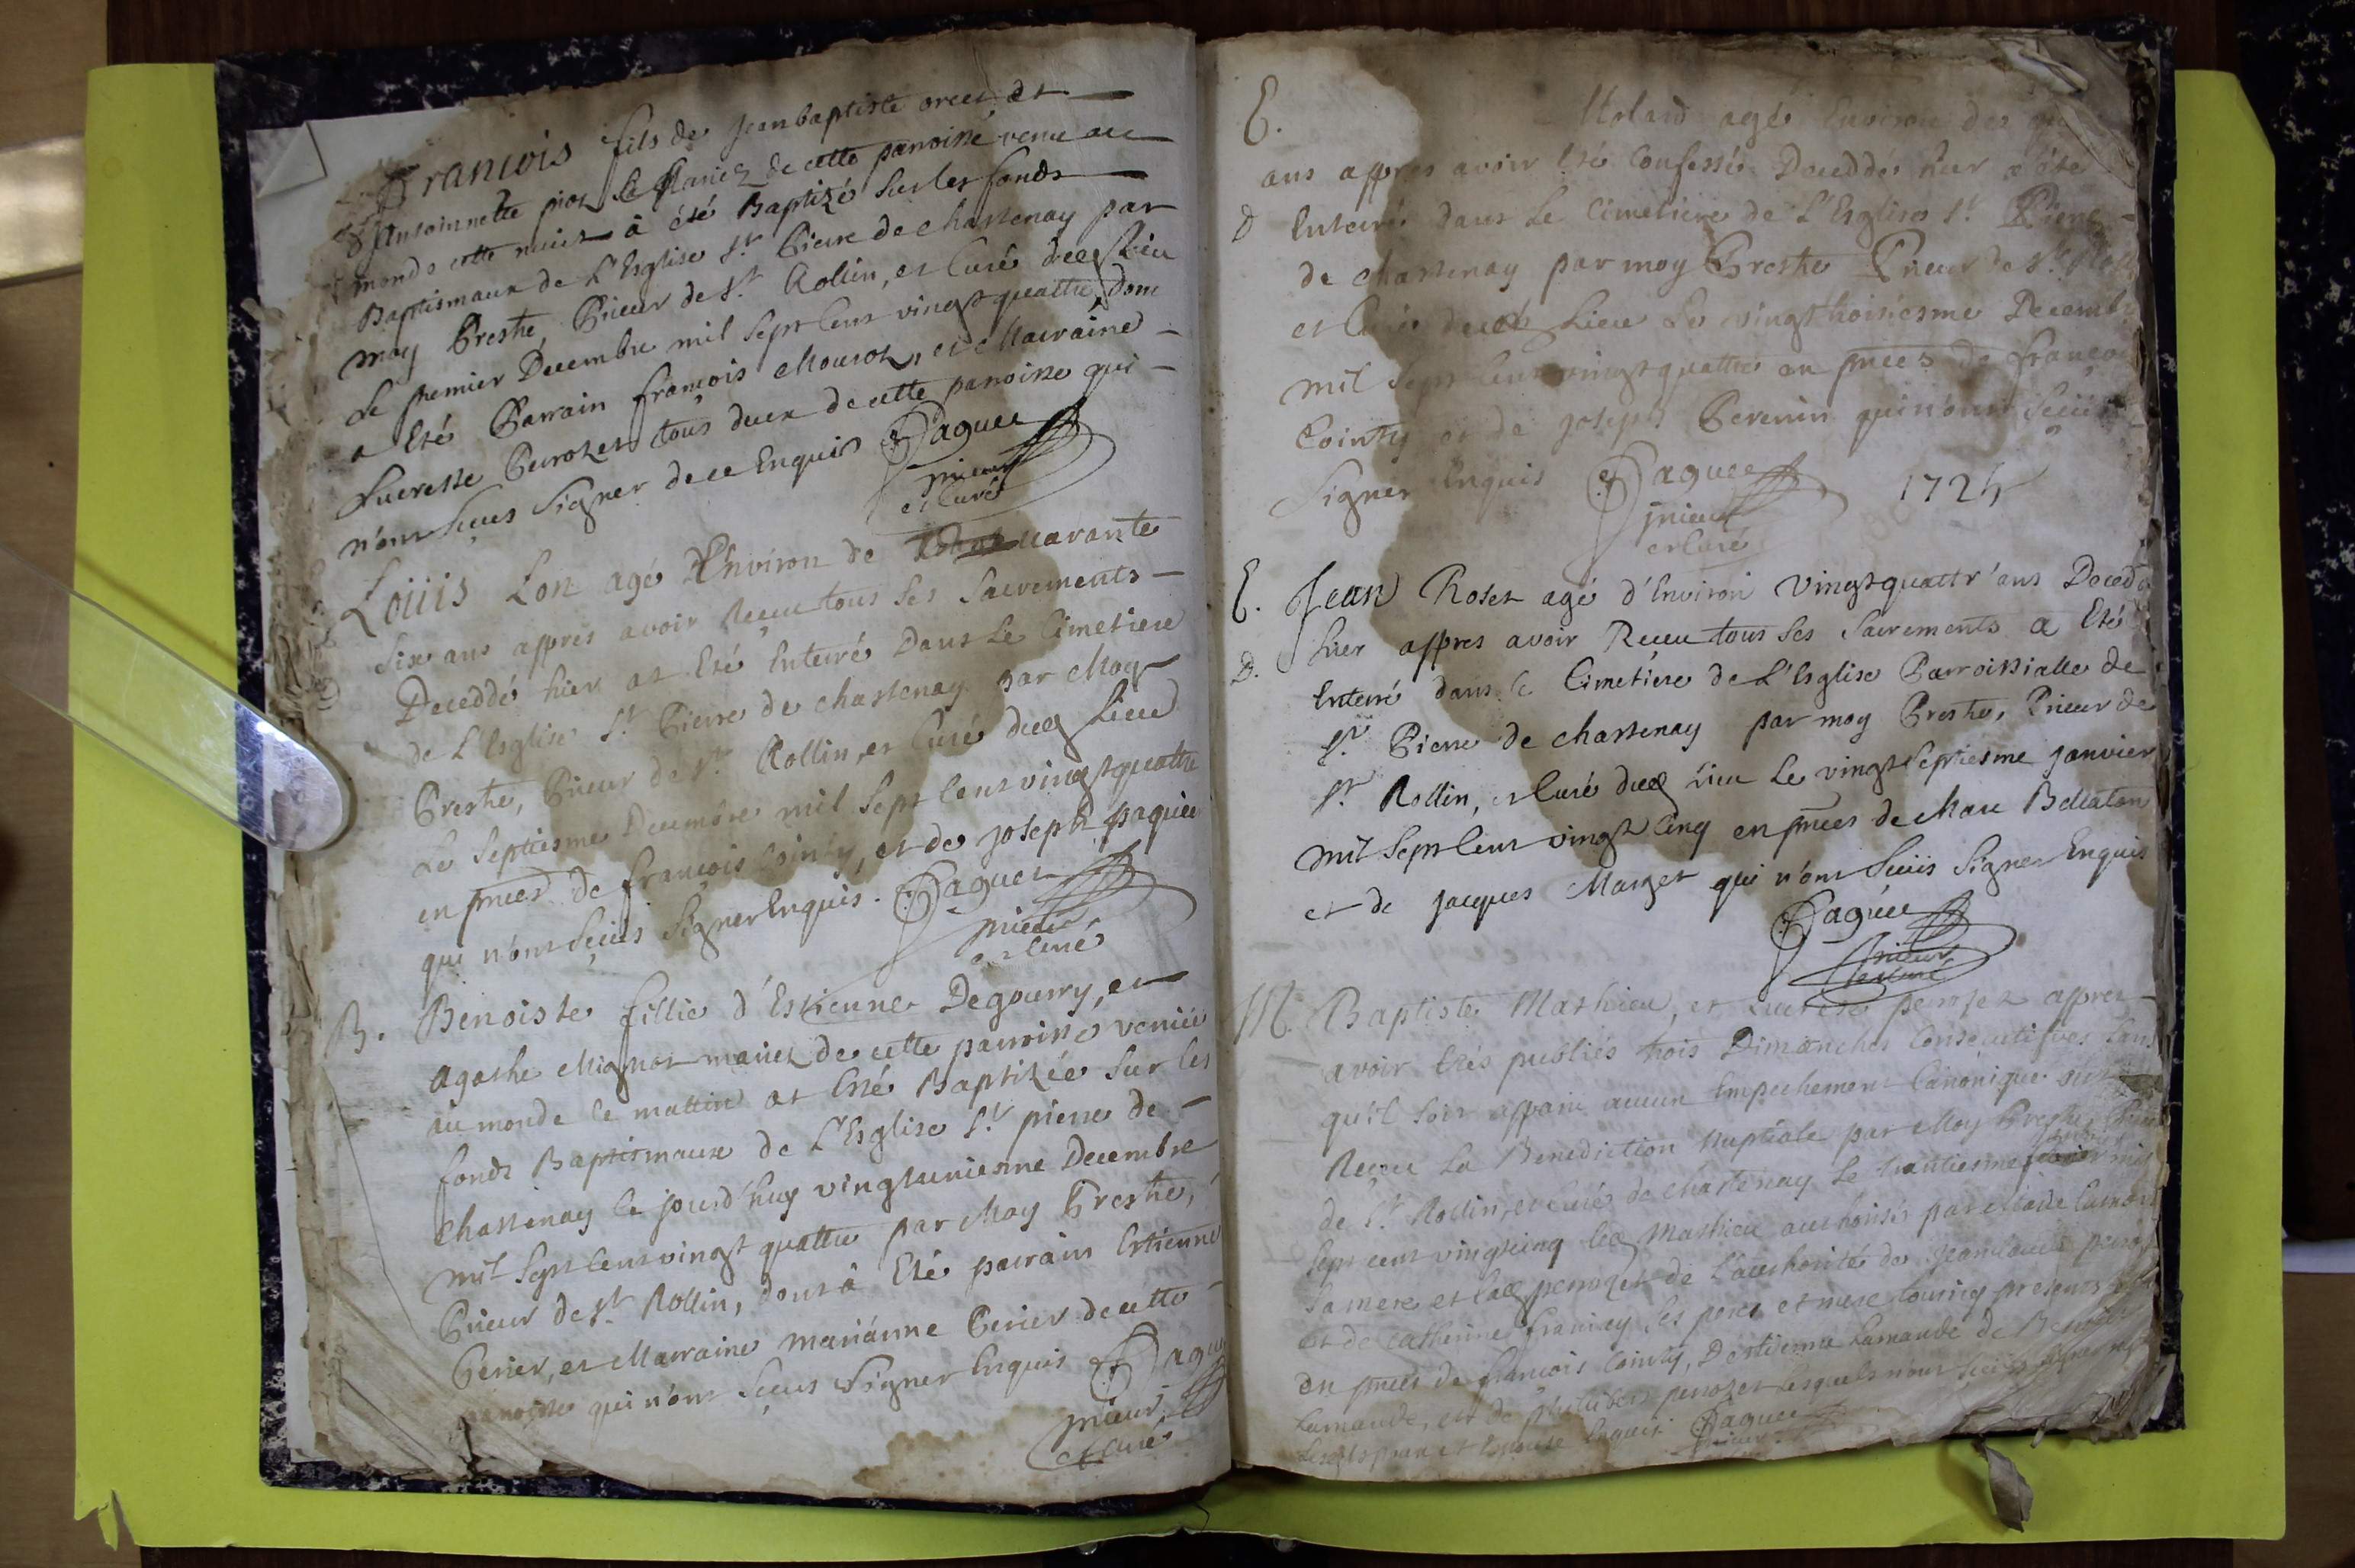 François fils de Jeanbaptiste orcet et
d'Antoinnette piot Se Mariez de cette parroisse venu au
monde cette nuict à été Baptizé Sur les fonds
Baptismaux de L'Esglise St Pierre de chastenay par
moy Prestre, Prieur de St Rollin, et Curé dud Lieu
Le premier Decembre mil Sept Cent vingt quattre, dont
a Eté Parrain françois Mourot, et Marraine
Lucresse Perrozet tous deux de cette parroisse qui
n'ont Sceus Signer de ce Enquis Paguee
prieur
et Curé
Loüis Lon agé d'Environ de quarante
Six ans appres avoir Reçeu tous Ses Sacrements
Deceddé hier at Eté Enterré Dans Le Cimetiere
de L'Esglise St Pierre de chastenay par Moy
Prestre, Prieur de St Rollin, et Curé dud Lieu
Le Septiesme Decembre mil Sept Cent vingt quattre
en pnces de françois Cointy, et de Joseph paquee
qui n'ont Sceüs Signer Enquis. Paguee
prieur
et Curé
B. Benoiste fillie d'Estienne Degourry, et
Agathe Mignot mariez de cette parroisse venüe
au monde le mattin at Esté Baptizée Sur les
fonds Baptismaux de L'Esglise St pierre de
Chastenay le jourd'huy vingtuniesme Decembre
mil Sept Cent vingt quattre par Moy Prestre,
Prieur de St Rollin, dont à Eté parrain Estienne
Perier, et Marraine marianne Perier de cette
parroisse qui n'ont Sceus Signer Enquis Pague
prieur
et Curé
E. Rolard agé Environ des
ans appres avoir Eté Confessé Deceddé hier a été
D Enterré dans Le Cimetiere de L'Esglise St Pierre
de chastenay par moy Prestre Prieur de St Roll
et Curé dud Lieu Le vingt troisiesme Decembr
mil Sept Cent vingt quattre en pnces de françoi
Cointy et de Joseph Perenin qui n'ont Sceüs
Signer Enquis Paguee 1724
prieur
et Curé
E. Jean Roset agé d'Environ vingt quattr'ans Deced
hier appres avoir Reçeu tous Ses Sacrements a Eté
D. Enterré dans le Cimetiere de L'Esglise Parroissialle de
St Pierre de chastenay par moy Prestre, Prieur de
St Rollin, et Curé dud Lieu Le vingt Septiesme janvier
mil Sept Cent vingt Cinq en pnces de Marc Bellaton
et de jacques Marget qui n'ont Sceüs Signer Enquis
Paguee
Prieur
et Curé
M. Baptiste Mathieu, et Lucresse perozet appres
avoir Etés publiés trois Dimanches Consecutifves Sans
qu'il Soit apparu aucun Empechement Canonique ont
Reçeu La Benediction Nuptiale par Moy Prestre, Prieur
de St Rollin, et Curé de chastenay Le trantiesme janvier mil
Sept cent vingt cinq led Mathieu authorisé par Marie Lamour
Sa mere et lad perrozet de L'authorité de
et de Catherine françey Ses pere et mere presents
en pnces de françois Cointy, d'Estienne Lamaude de
Lamaude, et de perrozet lesquels n'ont Sceüs Signer
Enquis Paguee
prieur